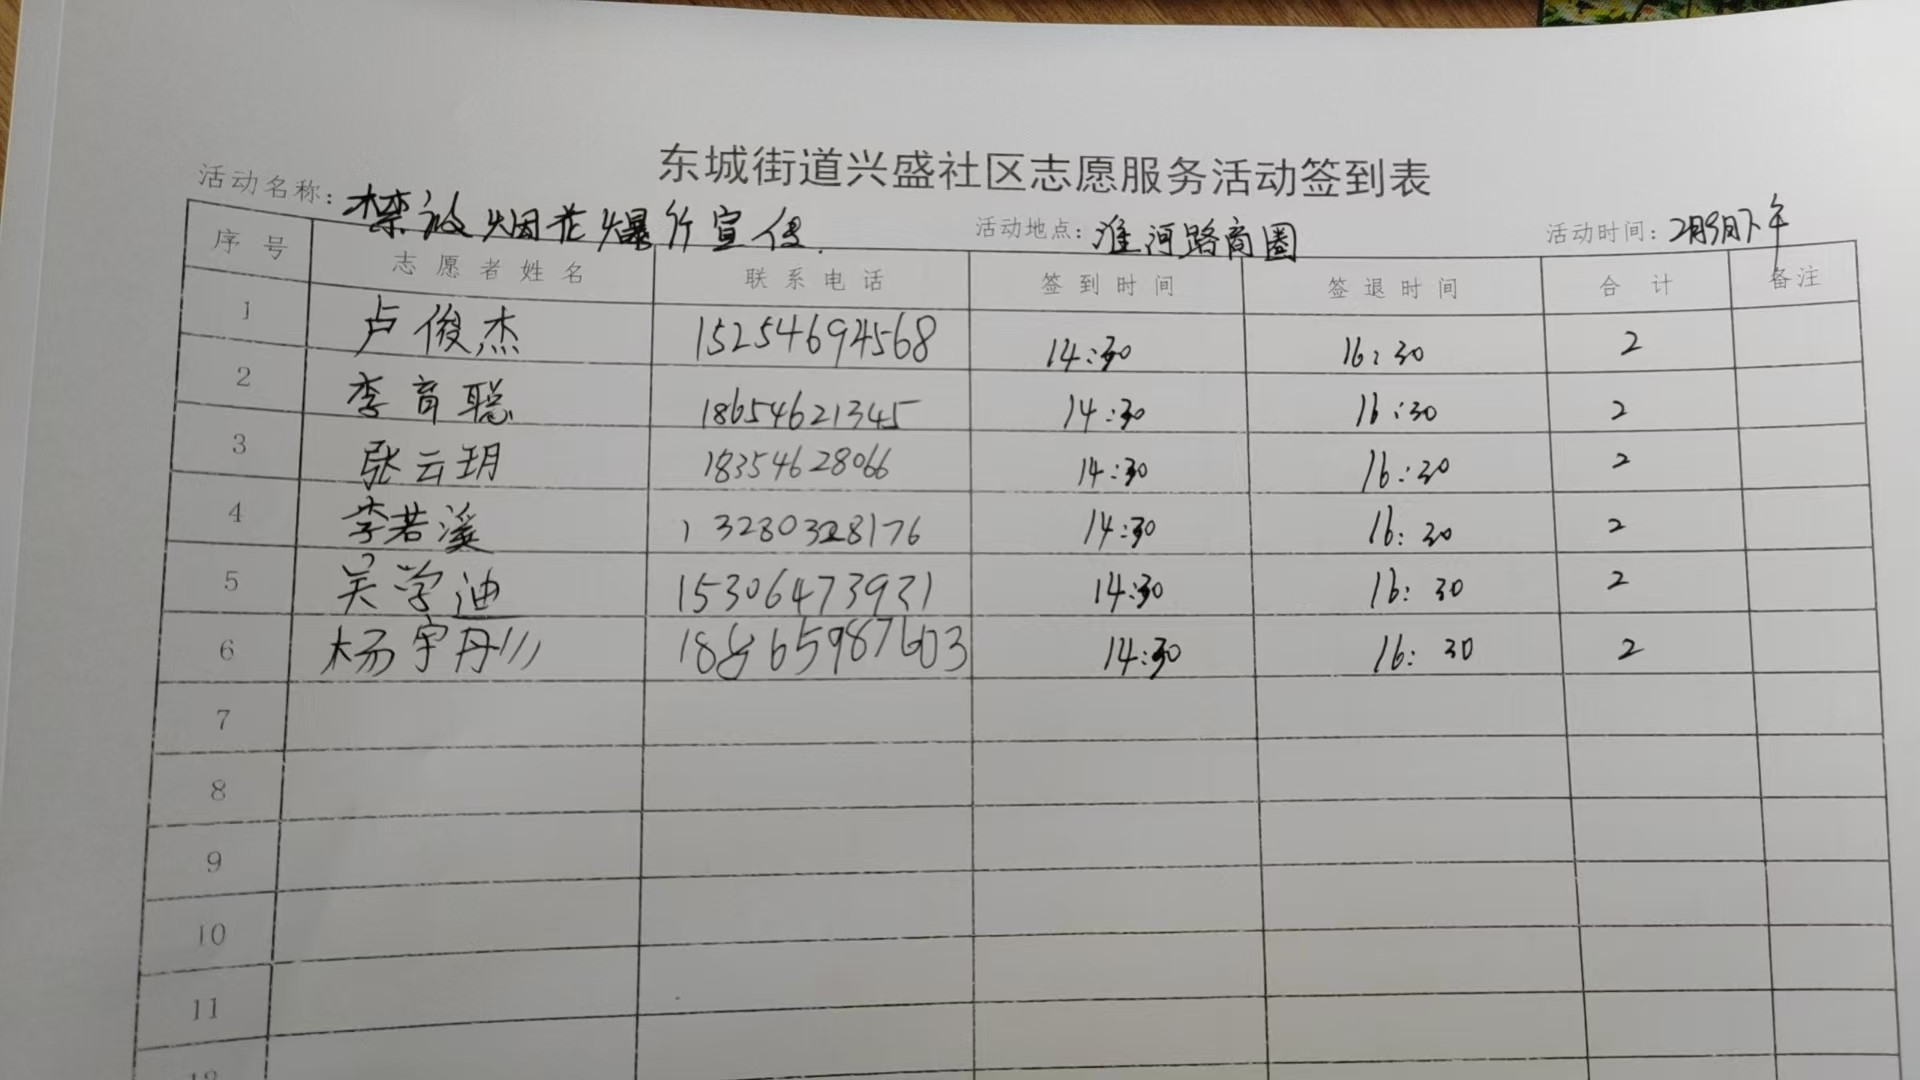 东城街道兴盛社区志愿服务活动签到表
活动名称：禁放烟花爆竹宣传 活动地点：淮河路商圈 活动时间：2月9日下午
序号 志愿者姓名 联系电话 签到时间 签退时间 合计 备注
1 卢俊杰 15254694568 14:30 16:30 2
2 李育聪 18654621345 14:30 16:30 2
3 张云玥 18354628066 14:30 16:30 2
4 李若溪 13280328176 14:30 16:30 2
5 吴学迪 15306473931 14:30 16:30 2
6 杨宇丹 14:30 16:30 2
7
8
9
10
11
12